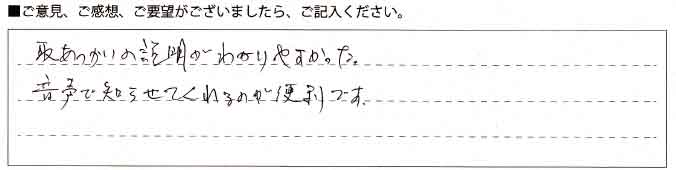 ■ご意見、ご感想、ご要望がございましたら、ご記入ください。
取あつかいの説明がわかりやすかった。
音声で知らせてくれるのが便利です。